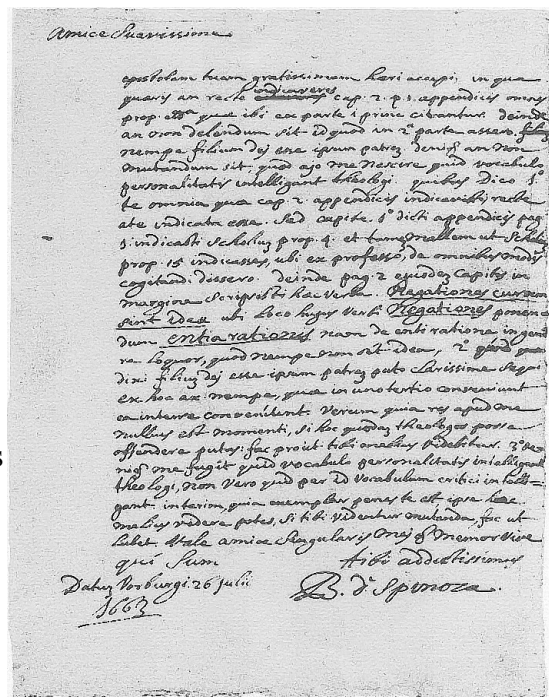 Amice Suavissime
epistolam tuam gratissimam heri accepi; in qua
quaeris an recte indicaveris cap. 2. p. 1. appendicis omnes
prop. etc. quae ibi ex parte 1 princ. citantur. deinde
an non delendum sit id quod in 2a parte assero.
nempe filium dej esse ipsum patrem. denique an non
mutandum sit, quod ajo me nescire quid vocabulo
personalitatis intelligant theologi. quibus Dico 1o
te omnia quae cap. 2. appendicis indicavisti recte
indicata esse. Sed capite 1o dicti appendicis pag.
1 indicasti Scholium prop. 4. et tamen mallem ut Scholium
prop. 15 indicasses, ubi ex professo, de omnibus modis
cogitandi dissero. deinde pag. 2 ejusdem capitis in
margine scripsisti haec verba. Negationes cur non
sint ideae ubi loco hujus verbi Negationes ponen=
dum entia rationis nam de enti rationis in gene
re loquor, quod nempe non sit idea, 2o quod
dixi filium dej esse ipsum patrem puto clarissime sequi
ex hoc ax. nempe, quae in uno tertio conveniunt
ea inter se conveniunt. Verum quia res apud me
nullius est momenti, si hoc quosdam theologos posse
offendere putes. fac prout tibi melius videbitur. 3o de
nique me fugit quid vocabulo personalitatis intelligant
theologi, non vero quid per id vocabulum critici intelli=
gant. interim, quia exemplar penes te est, ipse haec
melius videre potes, si tibi videntur mutanda, fac ut
lubet. Vale amice Singularis mej que memor vive
qui Sum
tibi addictissimus
Datum Vorburgi 26 julii
B. d. Spinoza.
1663